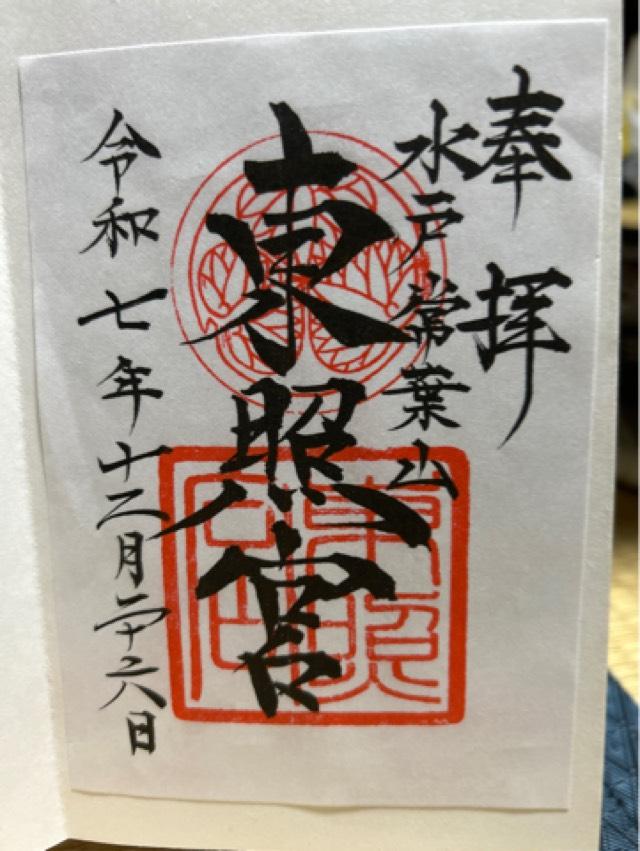 奉拝
水戸常葉山
東照宮
令和七年十二月二十六日
東照宮印